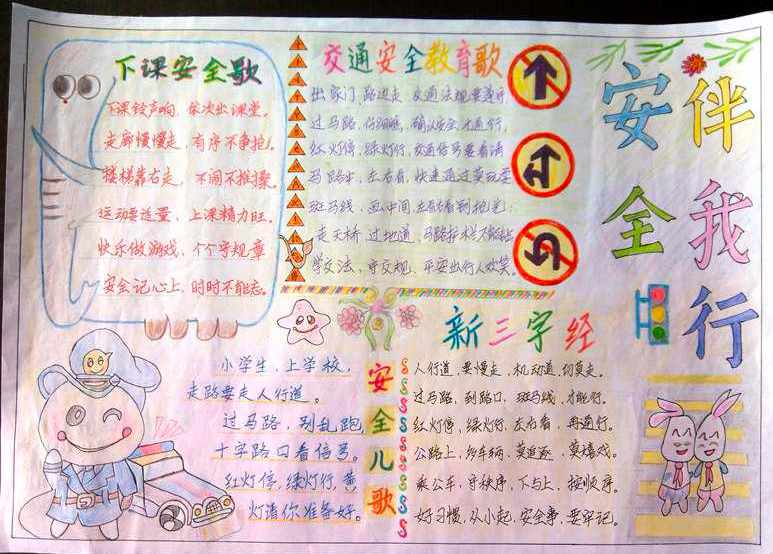 安全
伴我行
下课安全歌
下课铃声响，依次出课堂。
走廊慢慢走，有序不争抢。
楼梯靠右走，不闹不推搡。
运动要适量，上课精力旺。
快乐做游戏，个个守规章
安全记心上，时时不能忘。
交通安全教育歌
出家门，路边走，交通法规要遵守
过马路，仔细瞧，确认安全才通行；
红灯停，绿灯行，交通信号要看清
马路中，左右看，快速通过莫玩耍
斑马线，画中间，左右看到抢先；
走天桥，过地道，马路护栏不能钻
学交法，守交规，平安出行人欢笑。
小学生，上学校，
走路要走人行道。
过马路，别乱跑，
十字路口看信号。
红灯停，绿灯行，黄
灯请你准备好。
安全儿歌
新三字经
人行道，要慢走，机动道，切莫走。
过马路，到路口，斑马线，才能行。
红灯停，绿灯行，左右看，再通行。
公路上，车辆，莫追逐，莫嬉戏。
乘公车，守秩序，下与上，按顺序。
好习惯，从小起，安全事，要牢记。